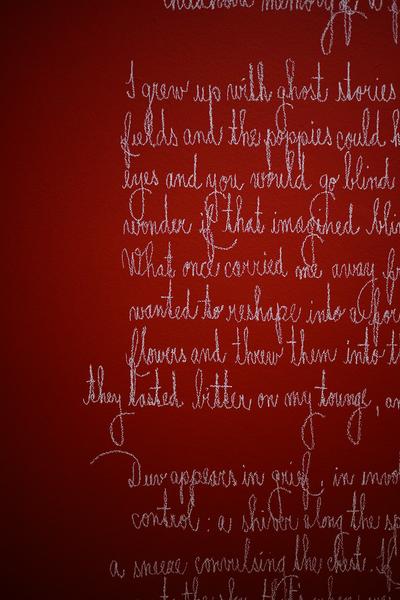 childhood memory of a
I grew up with ghost stories
fields and the poppies could
eyes and you would go blind
wonder if that imagined
What once carried me away
wanted to reshape into a
flowers and threw them into
they tasted bitter on my tounge,
Duv appears in grief, in
control: a shiver along the
a sneeze convulsing the chest. If
to the sky